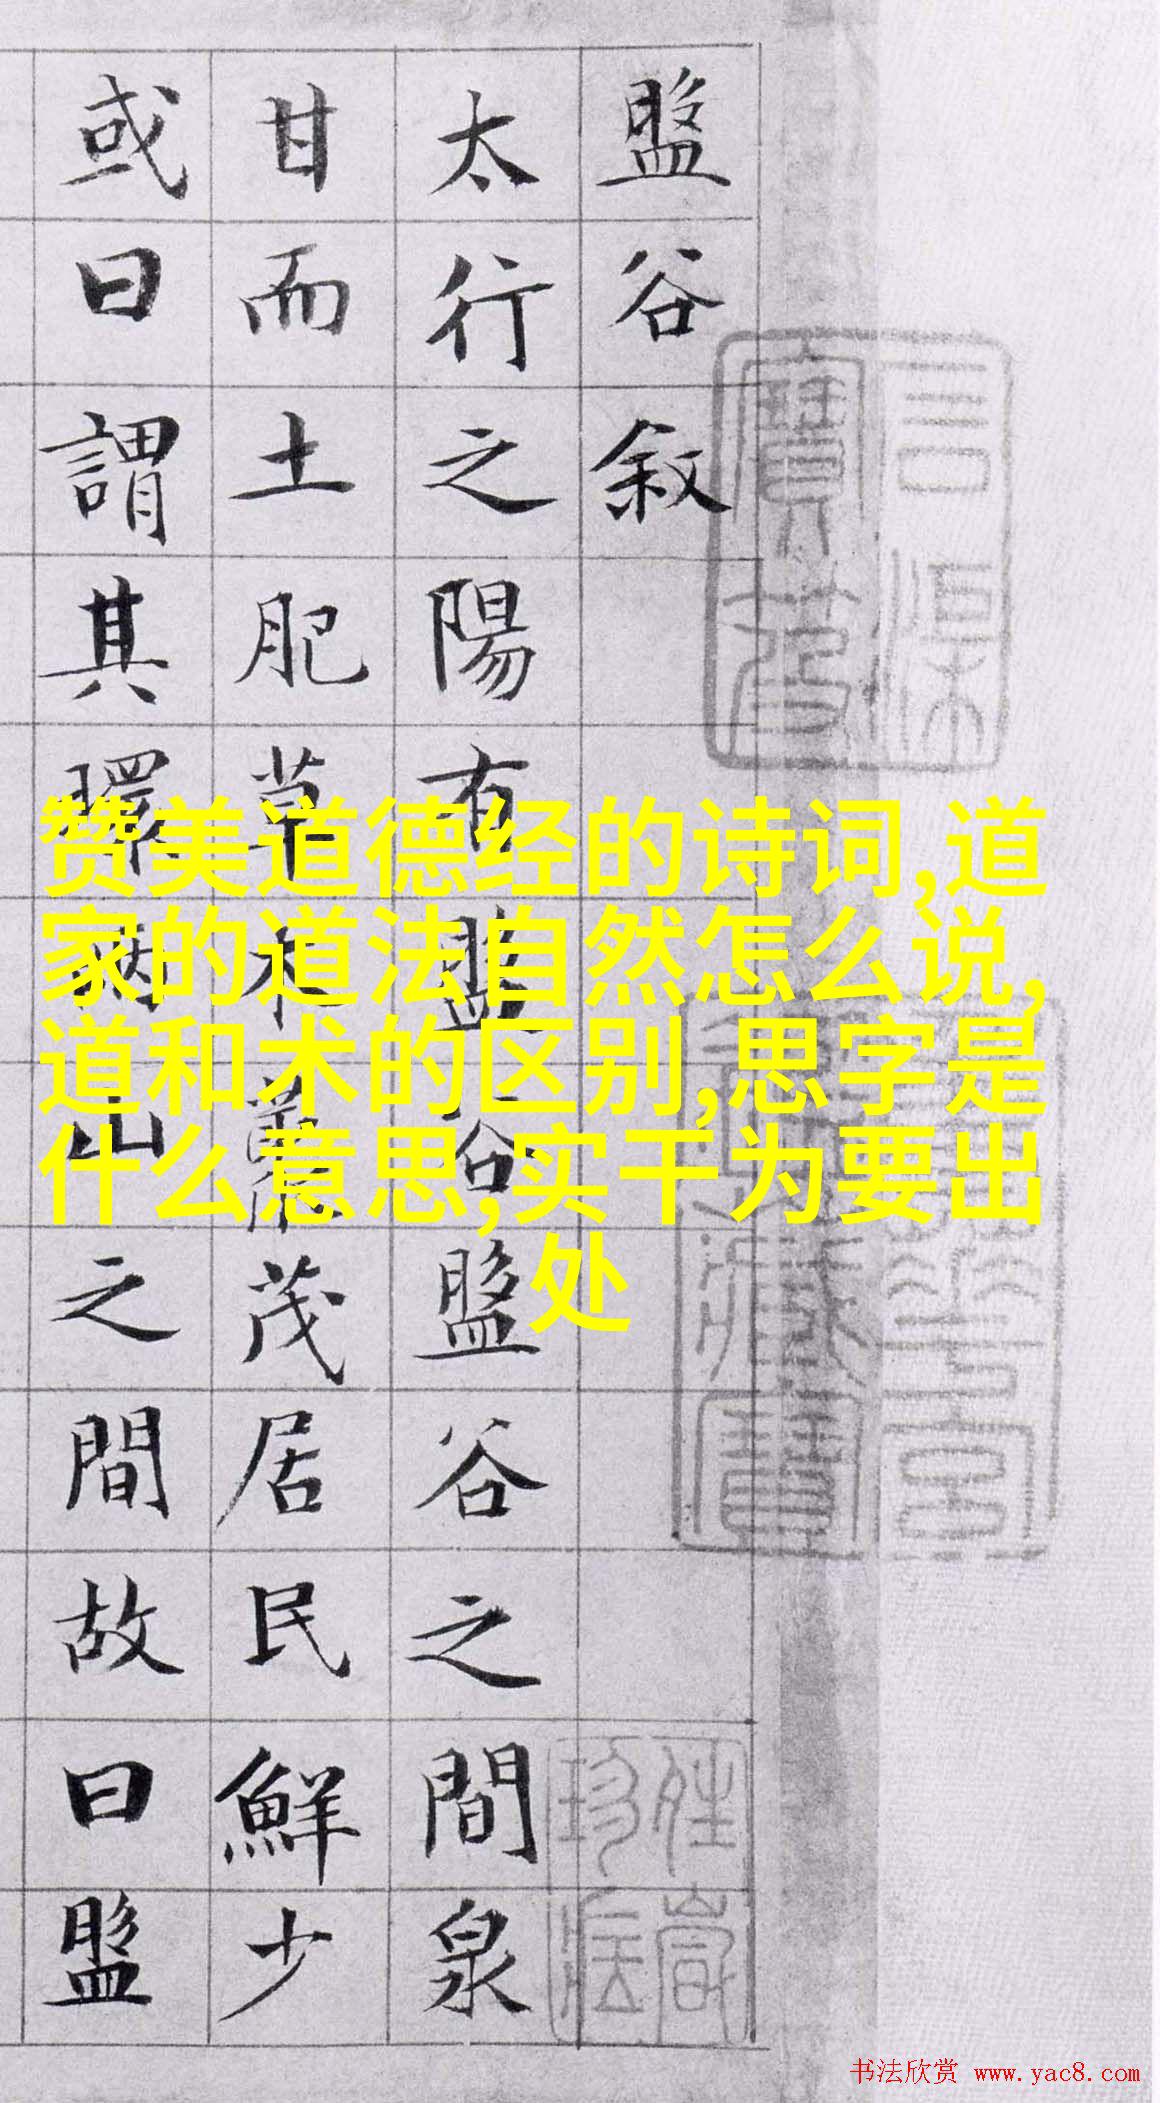 盤谷敘
太行之陽有盤谷盤谷之間泉
甘而土肥草木叢茂居民鮮少
或曰謂其環兩山之間故曰盤
赞美道德经的诗词,道
家的道法自然怎么说,
道和术的区别,思字是
什么意思,实干为要出
处
书法欣赏 www.yac8.com